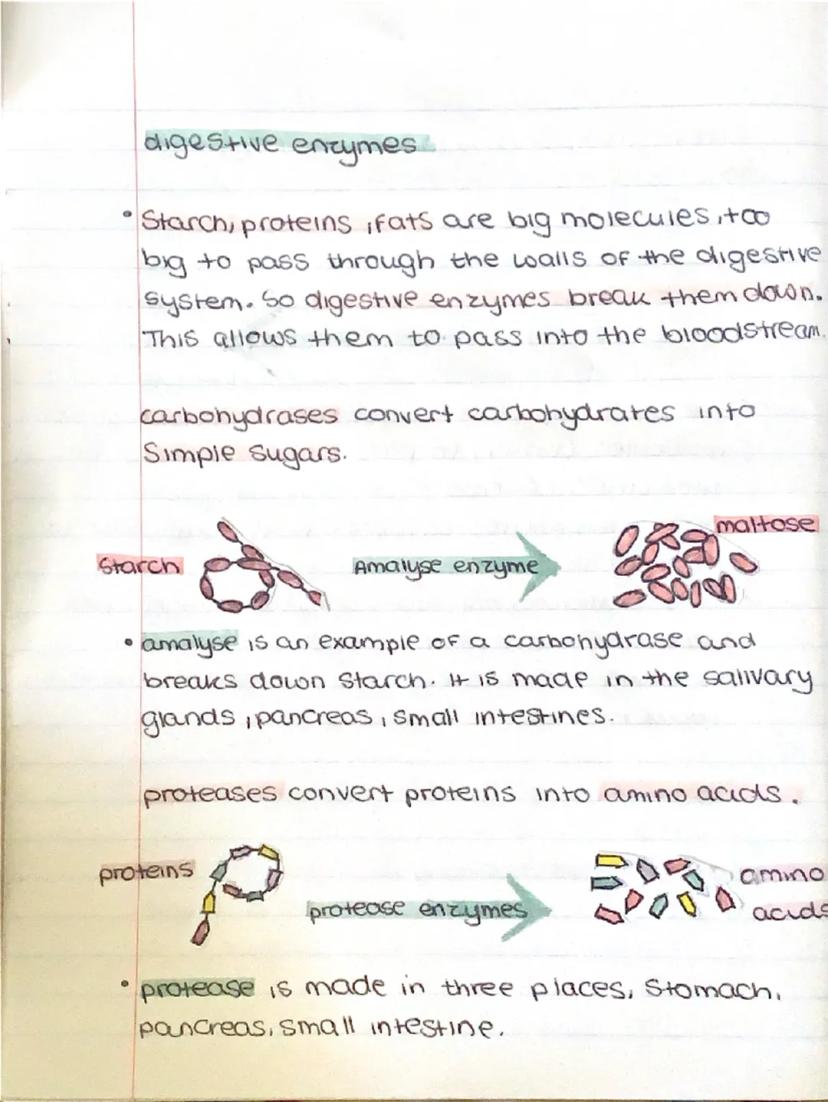 digestive enzymes
• Starch, proteins, fats are big molecules, too
big to pass through the walls of the digestive
system. So digestive enzymes break them down.
This allows them to pass into the bloodstream.
carbohydrases convert carbohydrates into
Simple sugars.
maltose
Starch Amalyse enzyme
• amalyse is an example of a carbohydrase and
breaks down Starch. It is made in the salivary
glands, pancreas, small intestines.
proteases convert proteins into amino acids.
proteins amino
protease enzymes acids
• protease is made in three places, Stomach,
pancreas, small intestine.